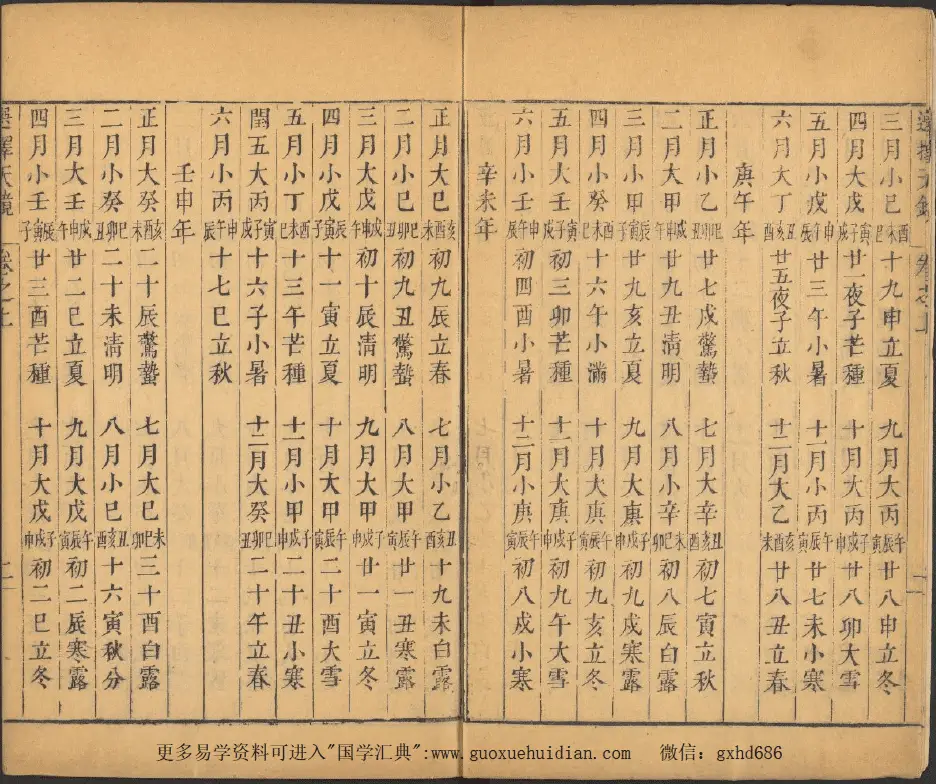 三月小己酉未巳十九申立夏 九月大丙午辰寅廿八申立冬
四月大戊寅子戌廿一夜子芒種 十月大丙子戌申廿八卯大雪
五月小戊申午辰廿三午小暑 十一月小丙午辰寅廿七未小寒
六月大丁丑亥酉廿五夜子立秋 十二月大乙亥酉未廿八丑立春
庚午年
正月小乙巳卯丑廿七戌驚蟄 七月大辛丑亥酉初七寅立秋
二月大甲戌申午廿九丑清明 八月小辛未巳卯初八辰白露
三月小甲辰寅子廿九亥立夏 九月大庚子戌申初九戌寒露
四月小癸酉未巳十六午小滿 十月大庚午辰寅初九亥立冬
五月大壬寅子戌初三卯芒種 十一月大庚子戌申初九午大雪
六月小壬申午辰初四酉小暑 十二月小庚午辰寅初八戌小寒
辛未年
正月大己亥酉未初九辰立春 七月小乙丑亥酉十九未白露
二月小己巳卯丑初九丑驚蟄 八月大甲午辰寅廿一丑寒露
三月大戊戌申午初十辰清明 九月大甲子戌申廿一寅立冬
四月小戊辰寅子十一寅立夏 十月大甲午辰寅二十酉大雪
五月小丁酉未巳十三午芒種 十一月小甲子戌申二十丑小寒
閏五大丙寅子戌十六子小暑 十二月大癸巳卯丑二十午立春
六月小丙申午辰十七巳立秋
壬申年
正月大癸亥酉未二十辰驚蟄 七月大己未巳卯三十酉白露
二月小癸巳卯丑二十未清明 八月小己丑亥酉十六寅秋分
三月大壬戌申午廿二巳立夏 九月大戊午辰寅初二辰寒露
四月小壬辰寅子廿三酉芒種 十月大戊子戌申初二巳立冬
選擇天鏡 卷之上 二
更多易学资料可进入"国学汇典":www.guoxuehuidian.com 微信：gxhd686